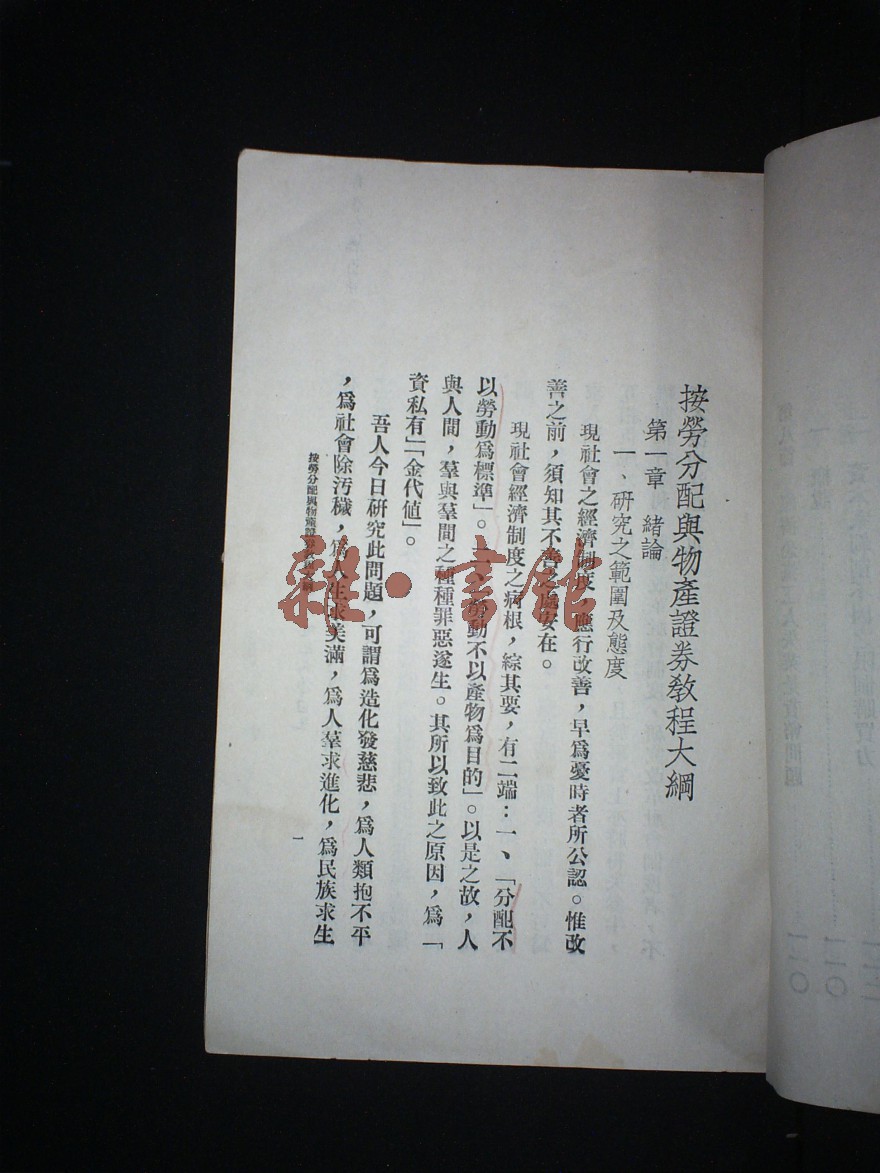 按勞分配與物產證券教程大綱
第一章 緒論
一、研究之範圍及態度
現社會之經濟制度，應行改善，早為憂時者所公認。惟改
善之前，須知其不善之處安在。
現社會經濟制度之病根，綜其要，有二端：一、「分配不
以勞動為標準」。二、「勞動不以產物為目的」。以是之故，人
與人間，羣與羣間之種種罪惡遂生。其所以致此之原因，為「
資私有」「金代值」。
吾人今日研究此問題，可謂為造化發慈悲，為人類抱不平
，為社會除汚穢，為人生求美滿，為人羣求進化，為民族求生
按勞分配與物產證券
一
雜·書館